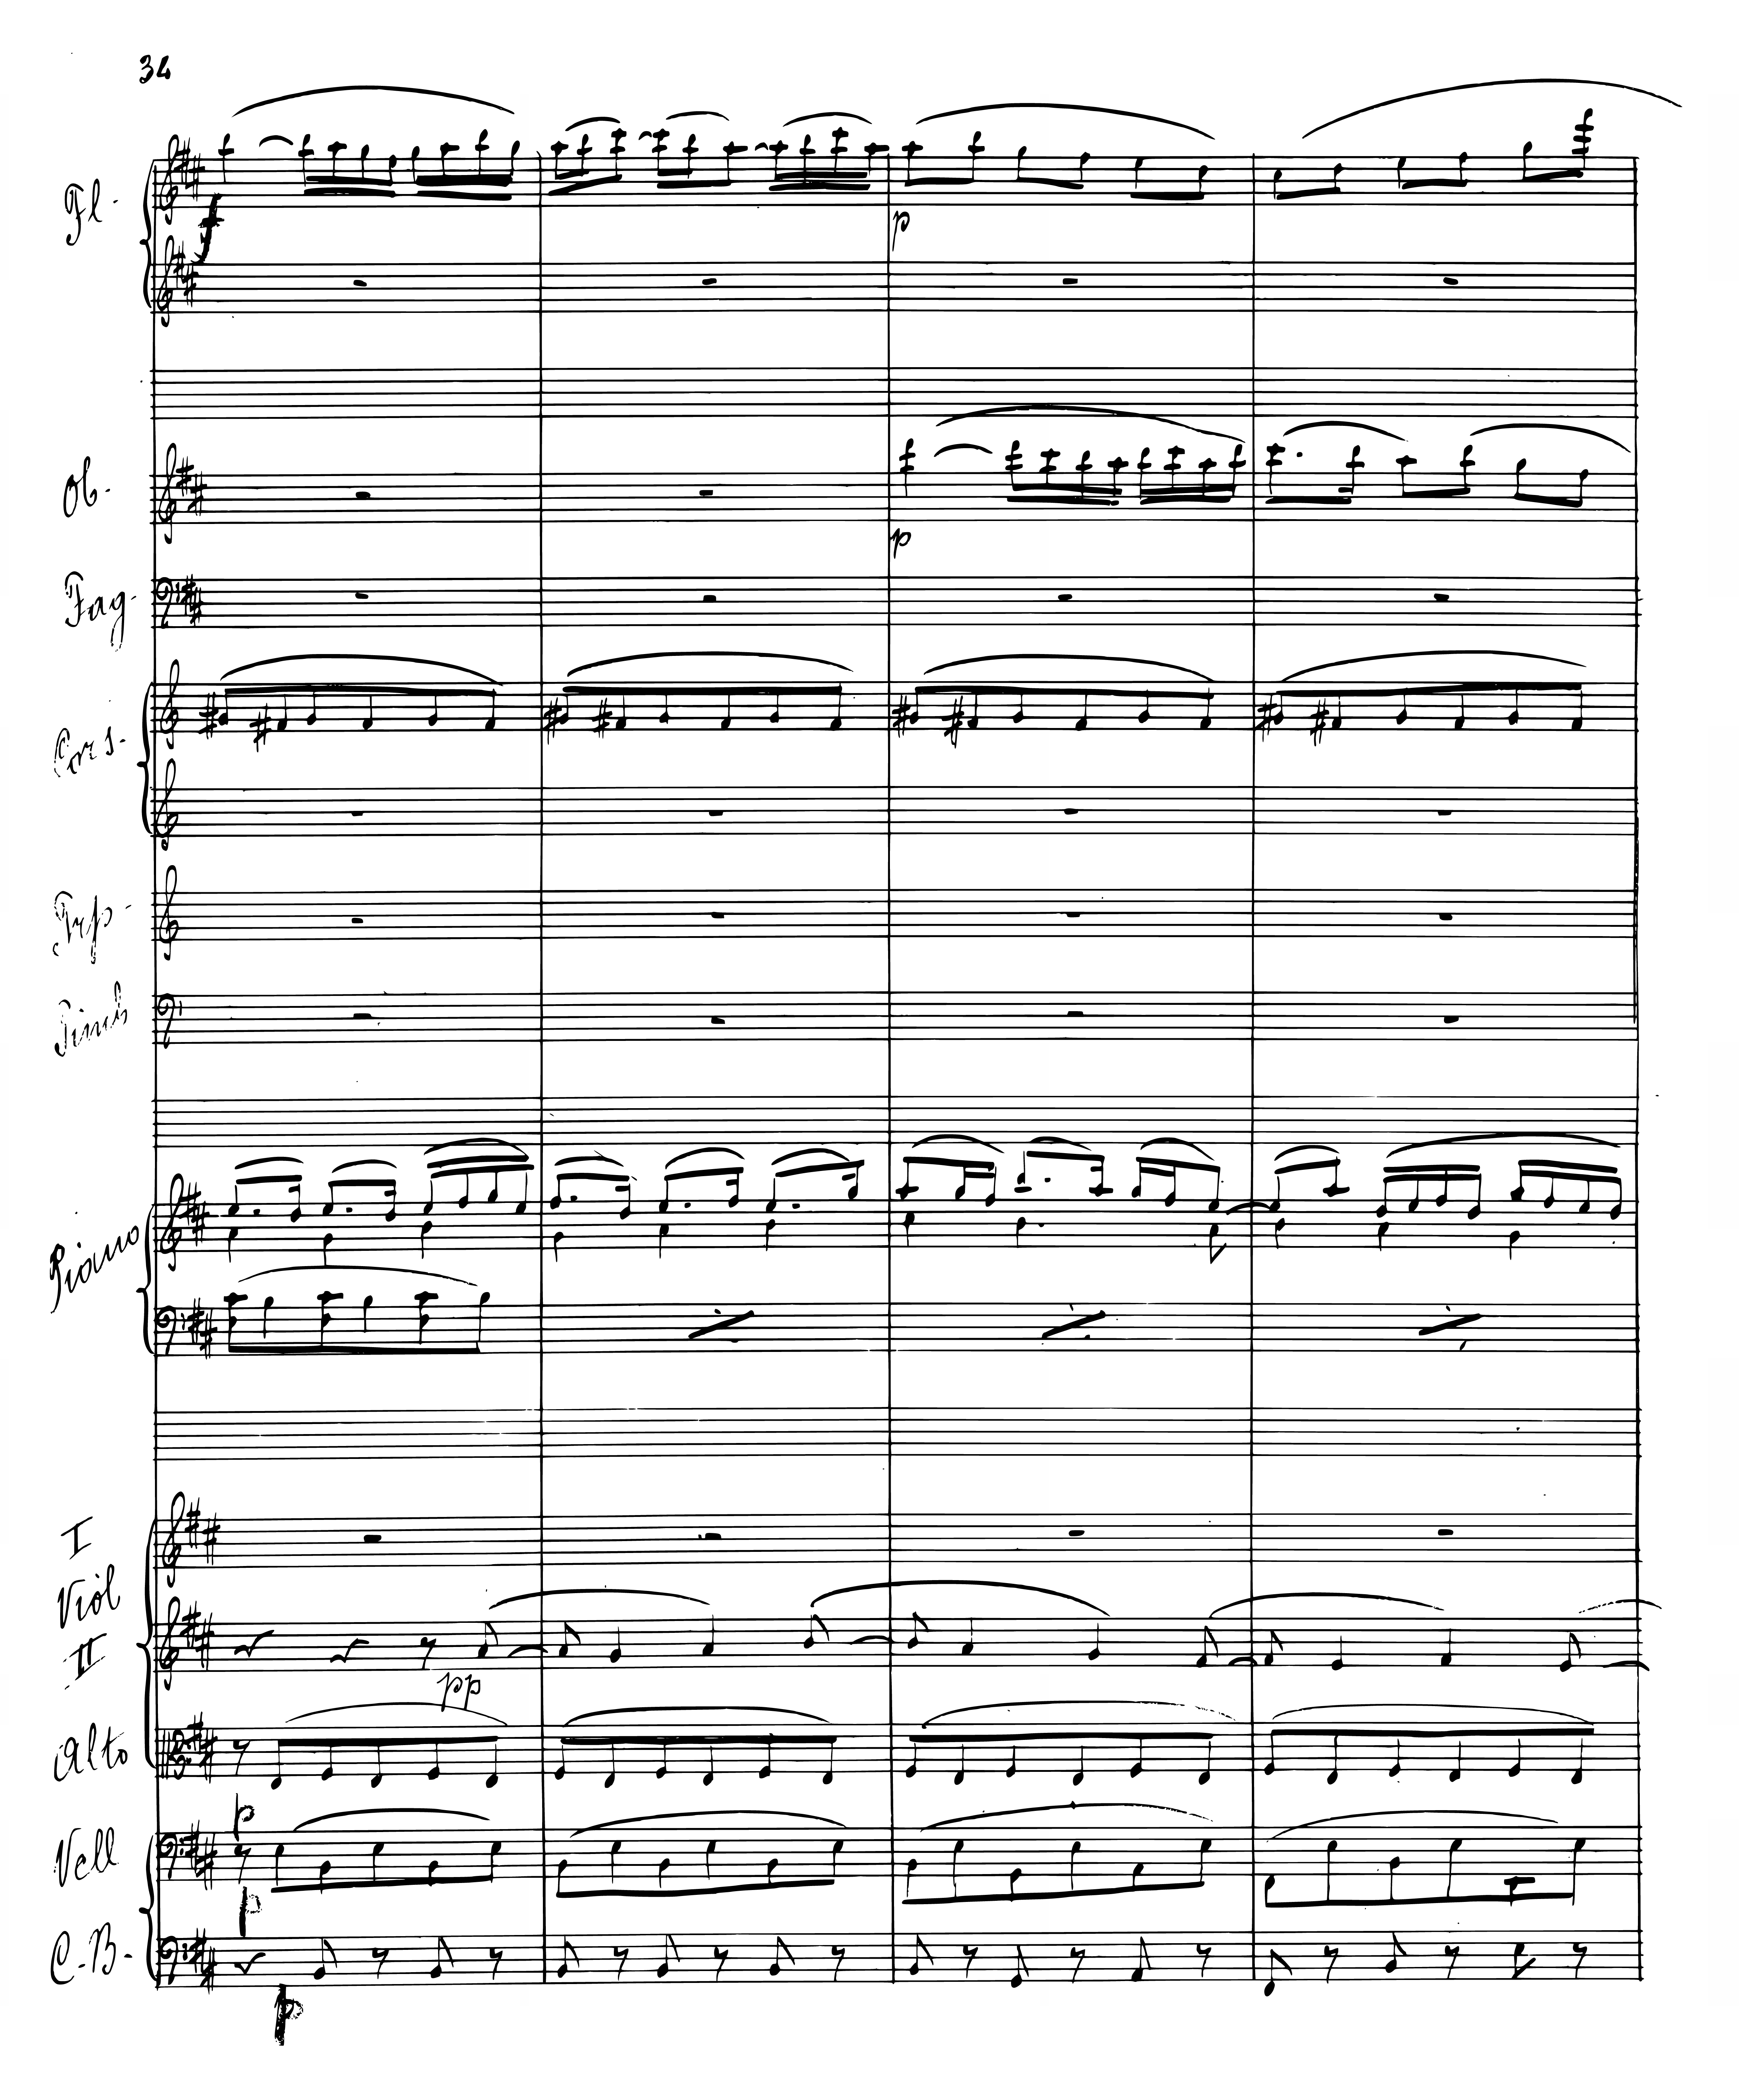 34
Fl-
f
p
Ob-
p
Fag-
Cors-
Trp-
Timb
Piano
I
Viol
II
pp
Alto
p
Vcll
p
C-B-
p